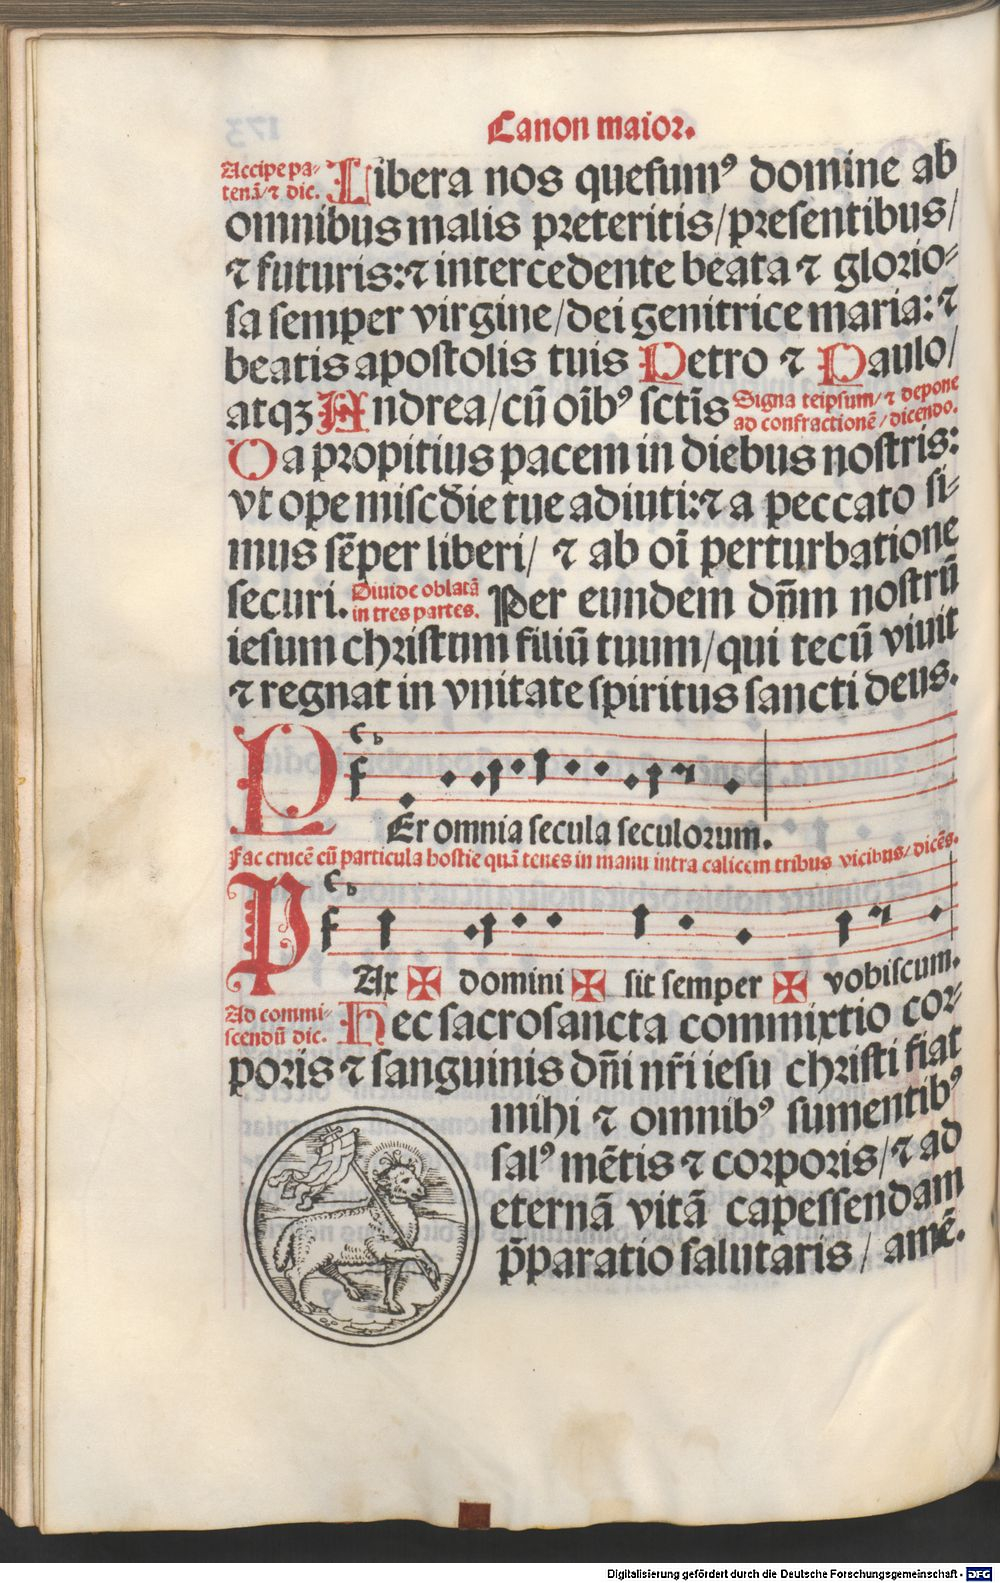 Canon maior.
Accipe pa-
tenā/ ⁊ dic. Libera nos quesumꝰ domine ab
omnibus malis preteritis/presentibus/
⁊ futuris:⁊ intercedente beata ⁊ glorio-
sa semper virgine/dei genitrice maria:⁊
beatis apostolis tuis Petro ⁊ Paulo/
atqꝫ Andrea/cū oībꝰ sctīs Signa teipsum/ ⁊ depone
ad confractionē/dicendo.
Da propitius pacem in diebus nostris:
vt ope miscd̄ie tue adiuti:⁊ a peccato si-
mus sēper liberi/ ⁊ ab oī perturbatione
securi. Diuide oblatā
in tres partes. Per eundem dn̄m nostrū
iesum christum filiū tuum/qui tecū viuit
⁊ regnat in vnitate spiritus sancti deus.
PEr omnia secula seculorum.
Fac crucē cū particula hostie quā tenes in manu intra calicem tribus vicibus/ dicēs.
PAx ✠ domini ✠ sit semper ✠ vobiscum.
Ad commi-
scendū dic. Hec sacrosancta commixtio cor-
poris ⁊ sanguinis dn̄i nr̄i iesu christi fiat
mihi ⁊ omnibꝰ sumentibꝰ
salꝰ mētis ⁊ corporis/⁊ ad
eternā vitā capessendam
p̄paratio salutaris/ amē.
Digitalisierung gefördert durch die Deutsche Forschungsgemeinschaft - DFG